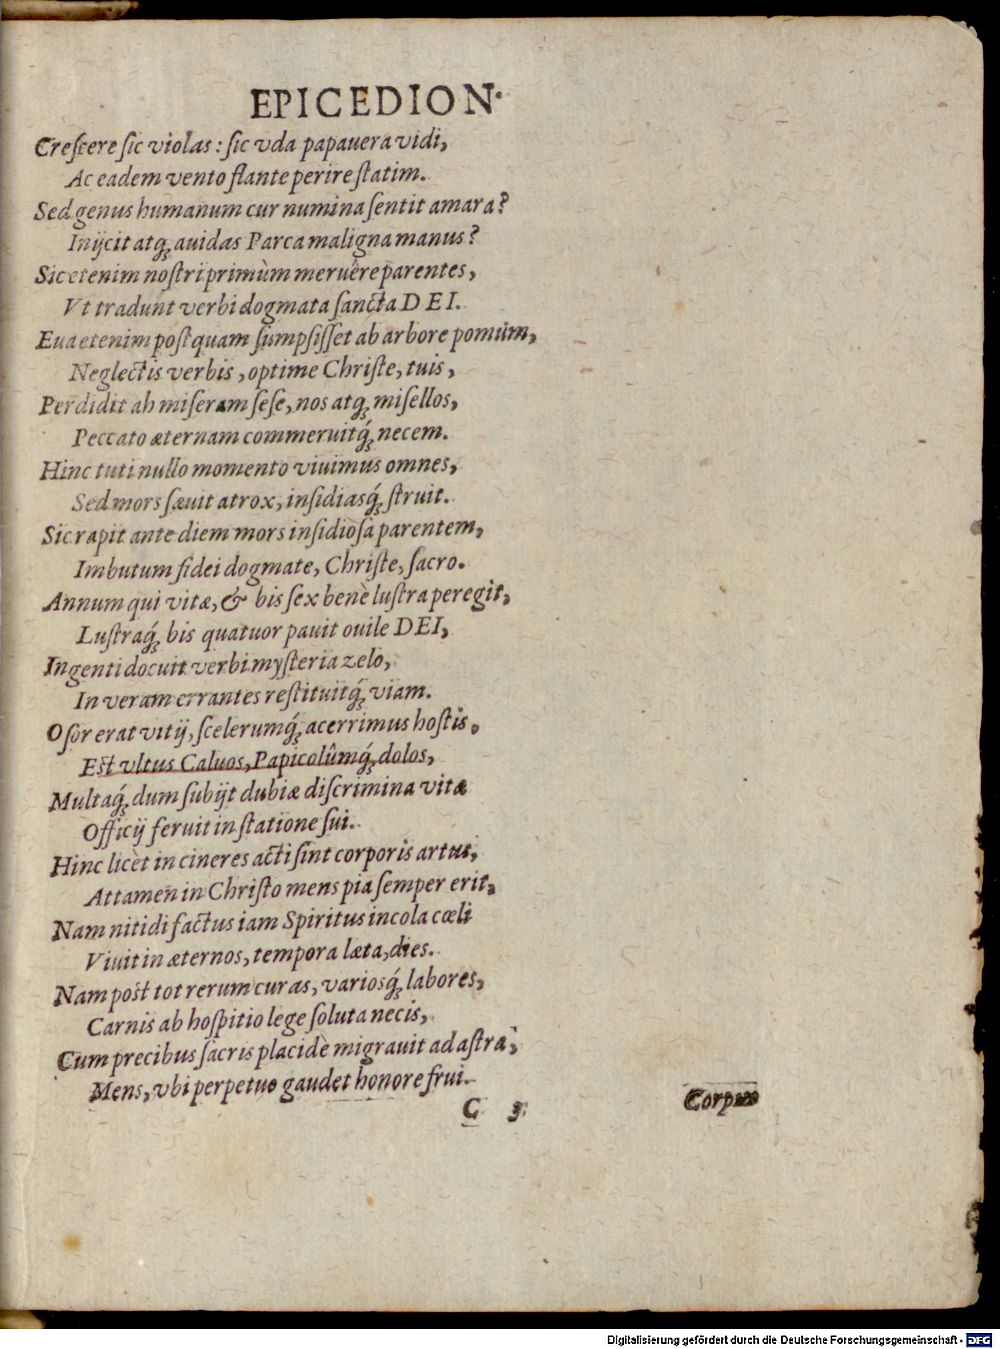 EPICEDION.
Creſcere ſic violas: ſic vda papauera vidi,
Ac eadem vento flante perire ſtatim.
Sed genus humanum cur numina ſentit amara?
Inijcit atq́ꝫ auidas Parca maligna manus?
Sic etenim noſtri primùm meruêre parentes,
Vt tradunt verbi dogmata ſancta DEI.
Eua etenim poſtquam ſumpſiſſet ab arbore pomum,
Neglectis verbis, optime Chriſte, tuis,
Perdidit ah miſeram ſeſe, nos atq́ꝫ miſellos,
Peccato æternam commeruitq́ꝫ necem.
Hinc tuti nullo momento viuimus omnes,
Sed mors ſæuit atrox, inſidiasq́ꝫ ſtruit.
Sic rapit ante diem mors inſidioſa parentem,
Imbutum fidei dogmate, Chriſte, ſacro.
Annum qui vitæ, & bis ſex benè luſtra peregit,
Luſtraq́ꝫ bis quatuor pauit ouile DEI,
Ingenti docuit verbi myſteria zelo,
In veram errantes reſtituitq́ꝫ viam.
Oſor erat vitij, ſcelerumq́ꝫ acerrimus hoſtis,
Eſt vltus Caluos, Papicolûmq́ꝫ dolos,
Multaq́ꝫ dum ſubijt dubiæ diſcrimina vitæ
Officij feruit in ſtatione ſui.
Hinc licèt in cineres acti ſint corporis artus,
Attamen in Chriſto mens pia ſemper erit,
Nam nitidi factus iam Spiritus incola cœli
Viuit in æternos, tempora læta, dies.
Nam poſt tot rerum curas, variosq́ꝫ labores,
Carnis ab hoſpitio lege ſoluta necis,
Cum precibus ſacris placidè migrauit ad aſtra,
Mens, vbi perpetuo gaudet honore frui.
C 3 Corpus
Digitalisierung gefördert durch die Deutsche Forschungsgemeinschaft - DFG